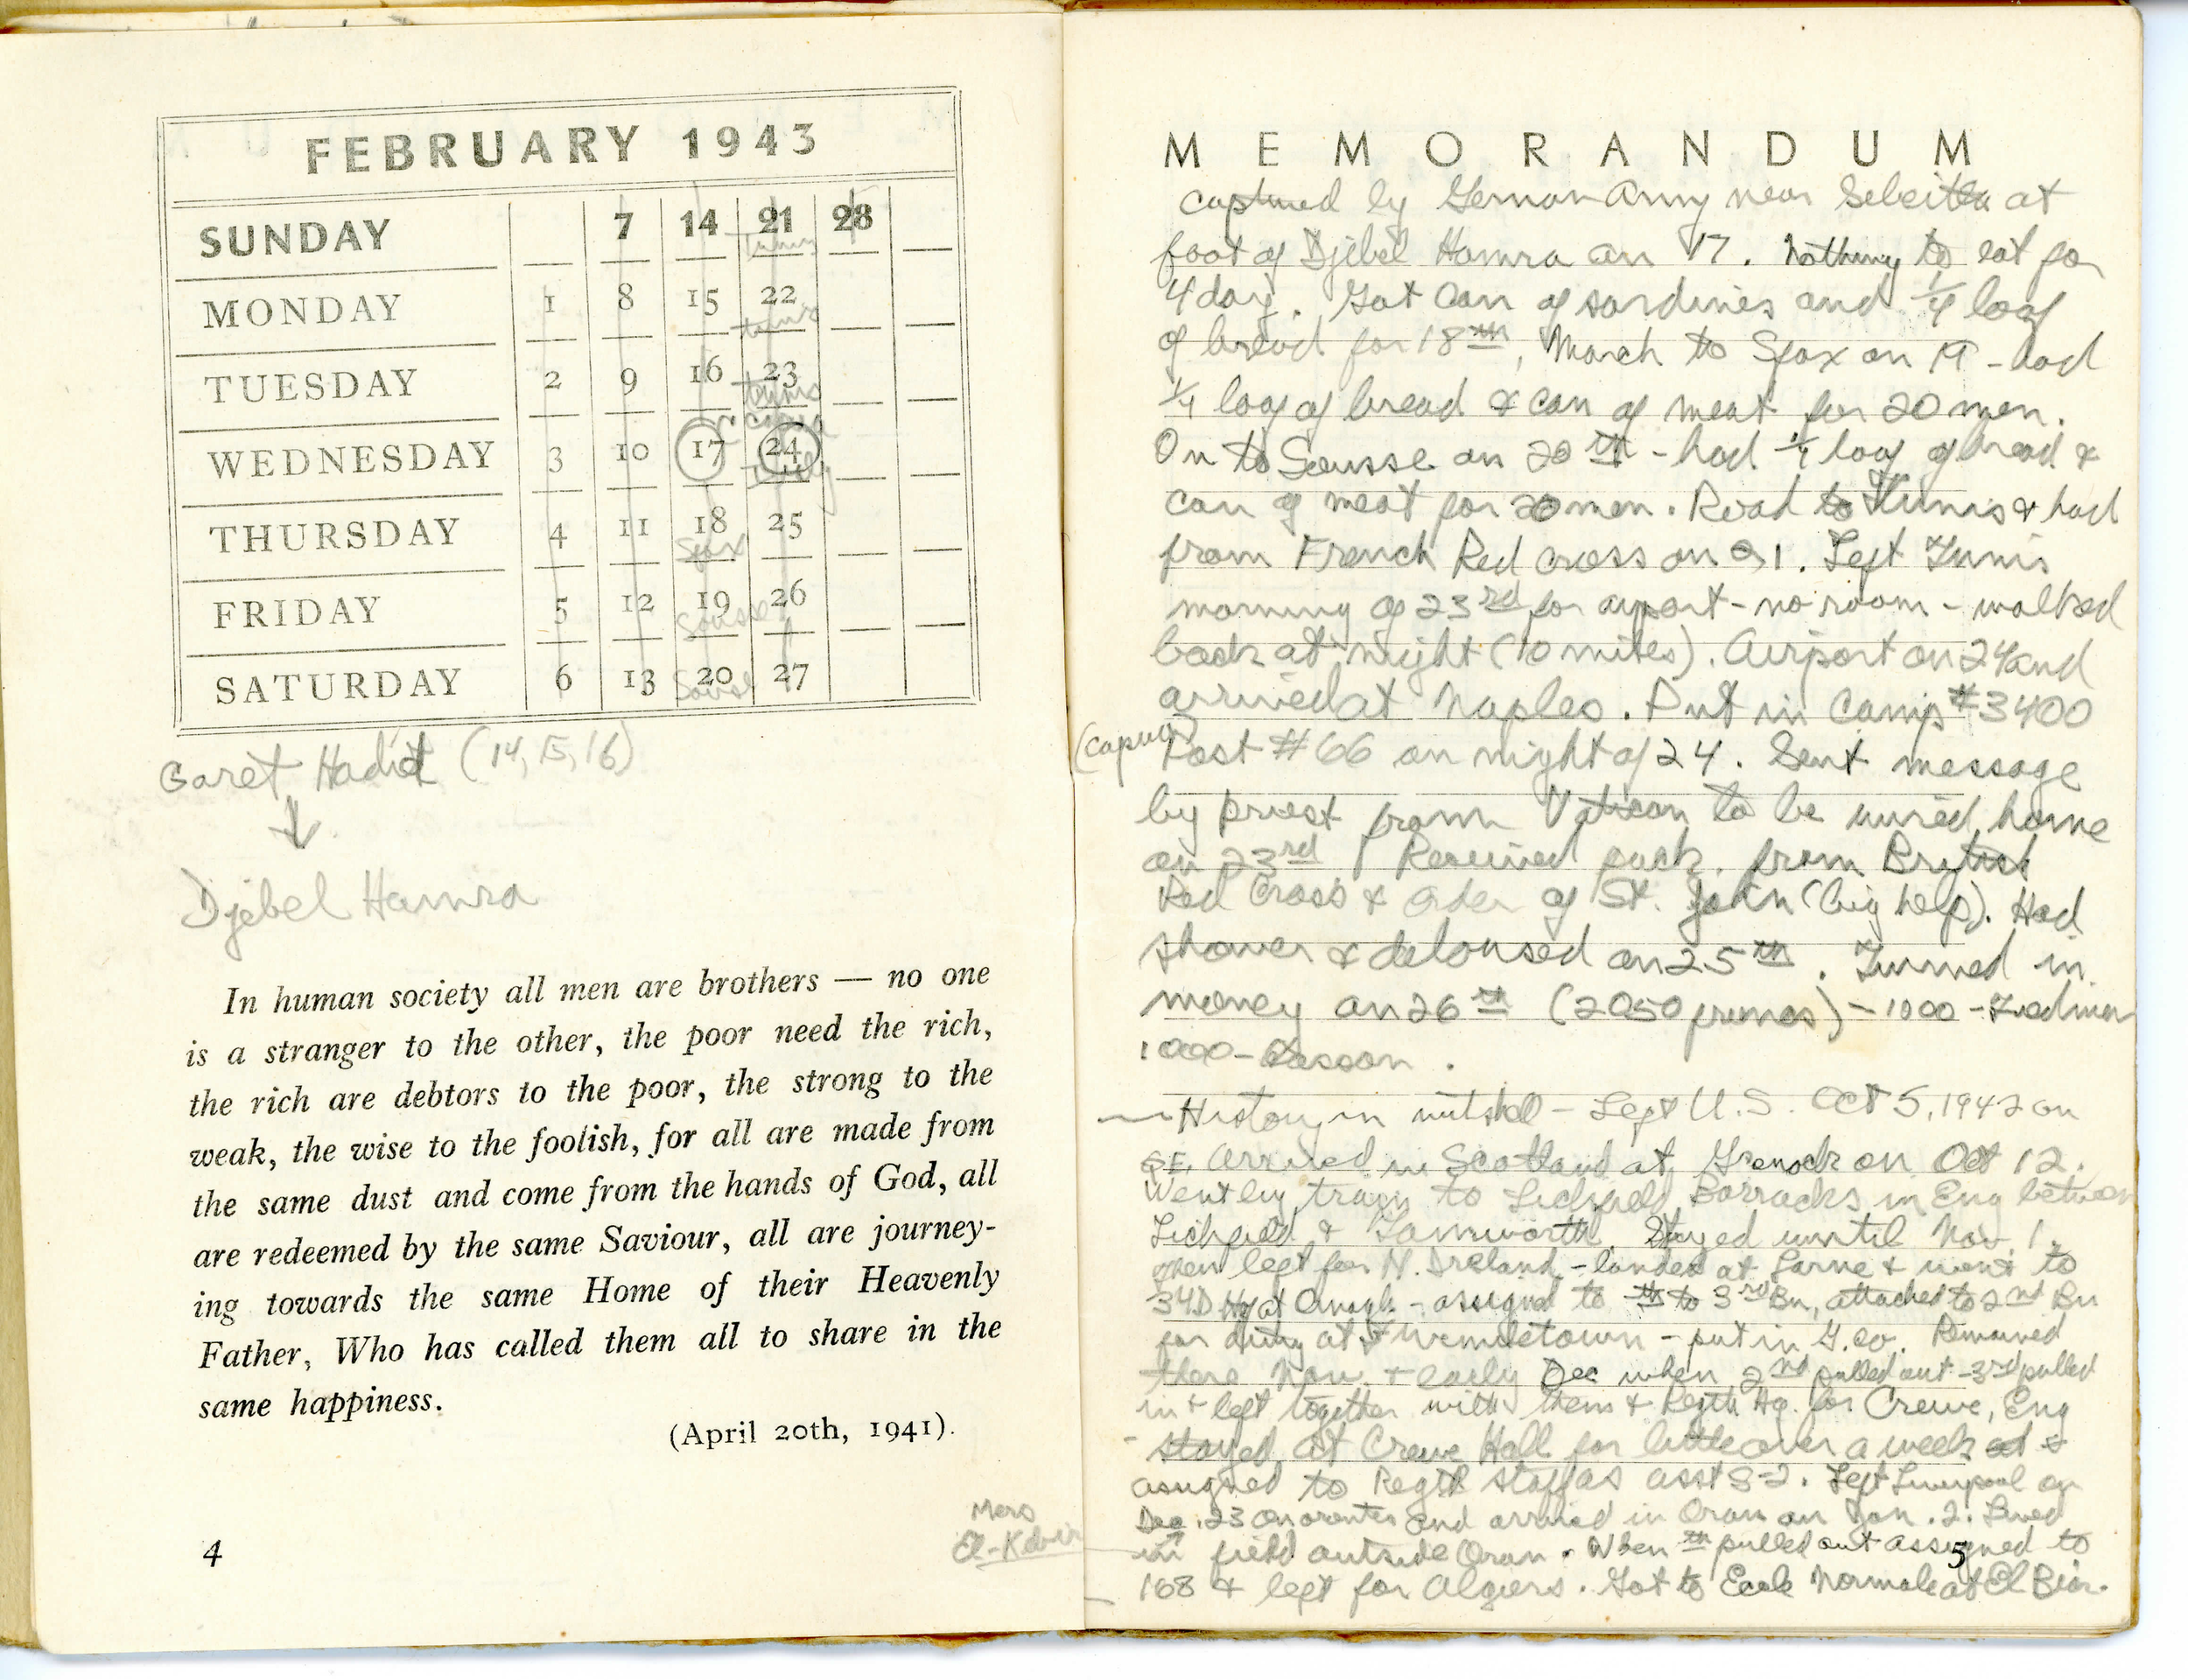 FEBRUARY 1943
SUNDAY 7 14 21 28
Tunis
MONDAY 1 8 15 22
Tunis
TUESDAY 2 9 16 23
Tunis
Capua
WEDNESDAY 3 10 17 24
Italy
THURSDAY 4 11 18 25
Sfax
FRIDAY 5 12 19 26
Sousse
SATURDAY 6 13 20 27
Sousse
Garet Hadid (14, 15, 16)
Djebel Hamra
In human society all men are brothers — no one
is a stranger to the other, the poor need the rich,
the rich are debtors to the poor, the strong to the
weak, the wise to the foolish, for all are made from
the same dust and come from the hands of God, all
are redeemed by the same Saviour, all are journey-
ing towards the same Home of their Heavenly
Father, Who has called them all to share in the
same happiness.
(April 20th, 1941).
Mers
El-Kebir
4
MEMORANDUM
captured by German Army near Sbeitla at
foot of Djebel Hamra on 17. Nothing to eat for
4 days. Got can of sardines and 1/4 loaf
of bread for 18th, March to Sfax on 19 - had
1/4 loaf of bread & can of meat for 20 men.
On to Sousse on 20th - had 1/4 loaf of bread &
can of meat for 20 men. Road to Tunis & had
from French Red Cross on 21. Left Tunis
morning of 23rd for airport - no room - walked
back at night (10 miles). Airport on 24 and
arrived at Naples. Put in Camp #3400
(Capua) Post #66 on night of 24. Sent message
by priest from Vatican to be wired home
on 23rd Received pack. from British
Red Cross & Order of St. John (big help). Had
shower & deloused on 25th. Turned in
money on 26th (2050 francs) - 1000 -
1000 -
History in nutshell - Left U.S. Oct 5, 1942 on
Q.E. Arrived in Scotland at Grenock on Oct 12.
Went by train to Lichfield Barracks in Eng between
Lichfield & Tamworth. Stayed until Nov. 1.
when left for N. Ireland - landed at Larne & went to
34D Hq at Omagh - assigned to 3rd Bn, attached to 2nd Bn
for duty at - put in G. Co. Remained
there Nov. & early Dec when 2nd pulled out - 3rd pulled
in & left together with them & Regtl Hq. for Crewe, Eng
- stayed at Crewe Hall for little over a week &
assigned to Regtl staff as asst S-2. Left Liverpool on
Dec. 23 on and arrived in Oran on Jan. 2. Lived
in field outside Oran. When pulled out assigned to
168 & left for Algiers. Got to Ecole Normale at El Biar.
5